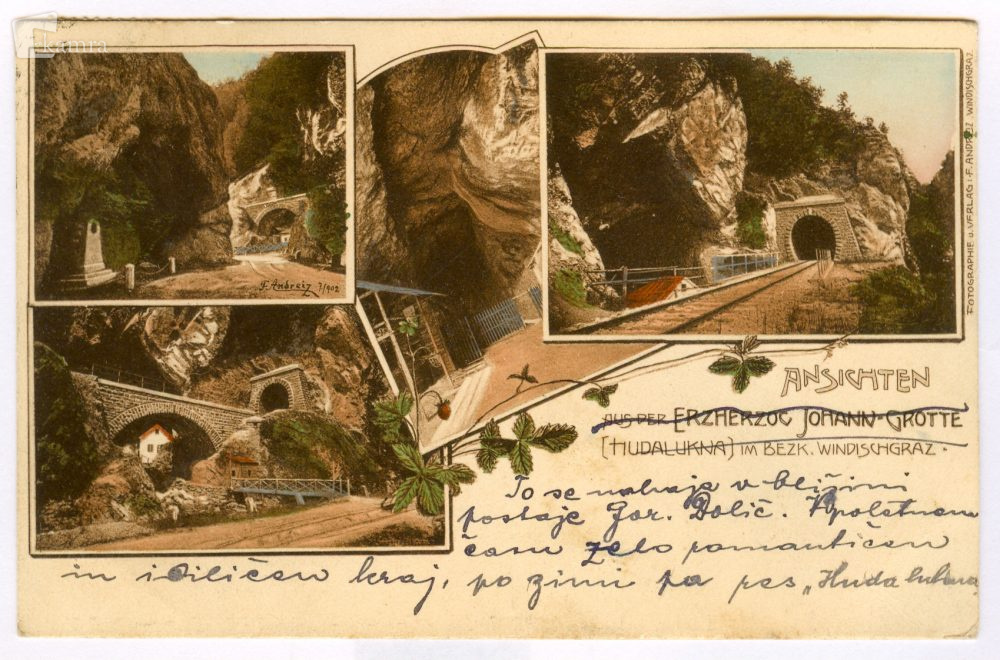 kamra
F. Andreiz 7/902
FOTOGRAPHIE u. VERLAG: F. ANDREIZ WINDISCHGRAZ.
ANSICHTEN
AUS DER ERZHERZOG JOHANN-GROTTE
[HUDALUKNA] IM BEZK. WINDISCHGRAZ.
To se nahaja v bližini
postaje Gor. Dolič. V poletnem
času zelo romantičen
in idiličen kraj, po zimi pa res „Huda lukna